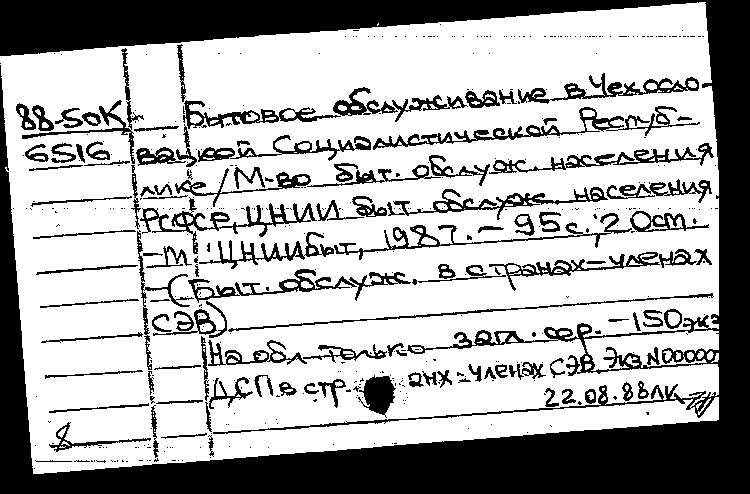 88-50К Бытовое обслуживание в Чехосло-
6516 вацкой Социалистической Респуб-
лике / М-во быт. обслуж. населения
РСФСР, ЦНИИ быт. обслуж. населения.
- М : ЦНИИбыт, 1987. - 95 с.; 20 см.
- (Быт. обслуж. в странах-членах
СЭВ)
На обл. только загл. сер. - 150 экз
ДСП в стр. анх-членах СЭВ. Экз. N 00000
22.08.88 ЛК
8